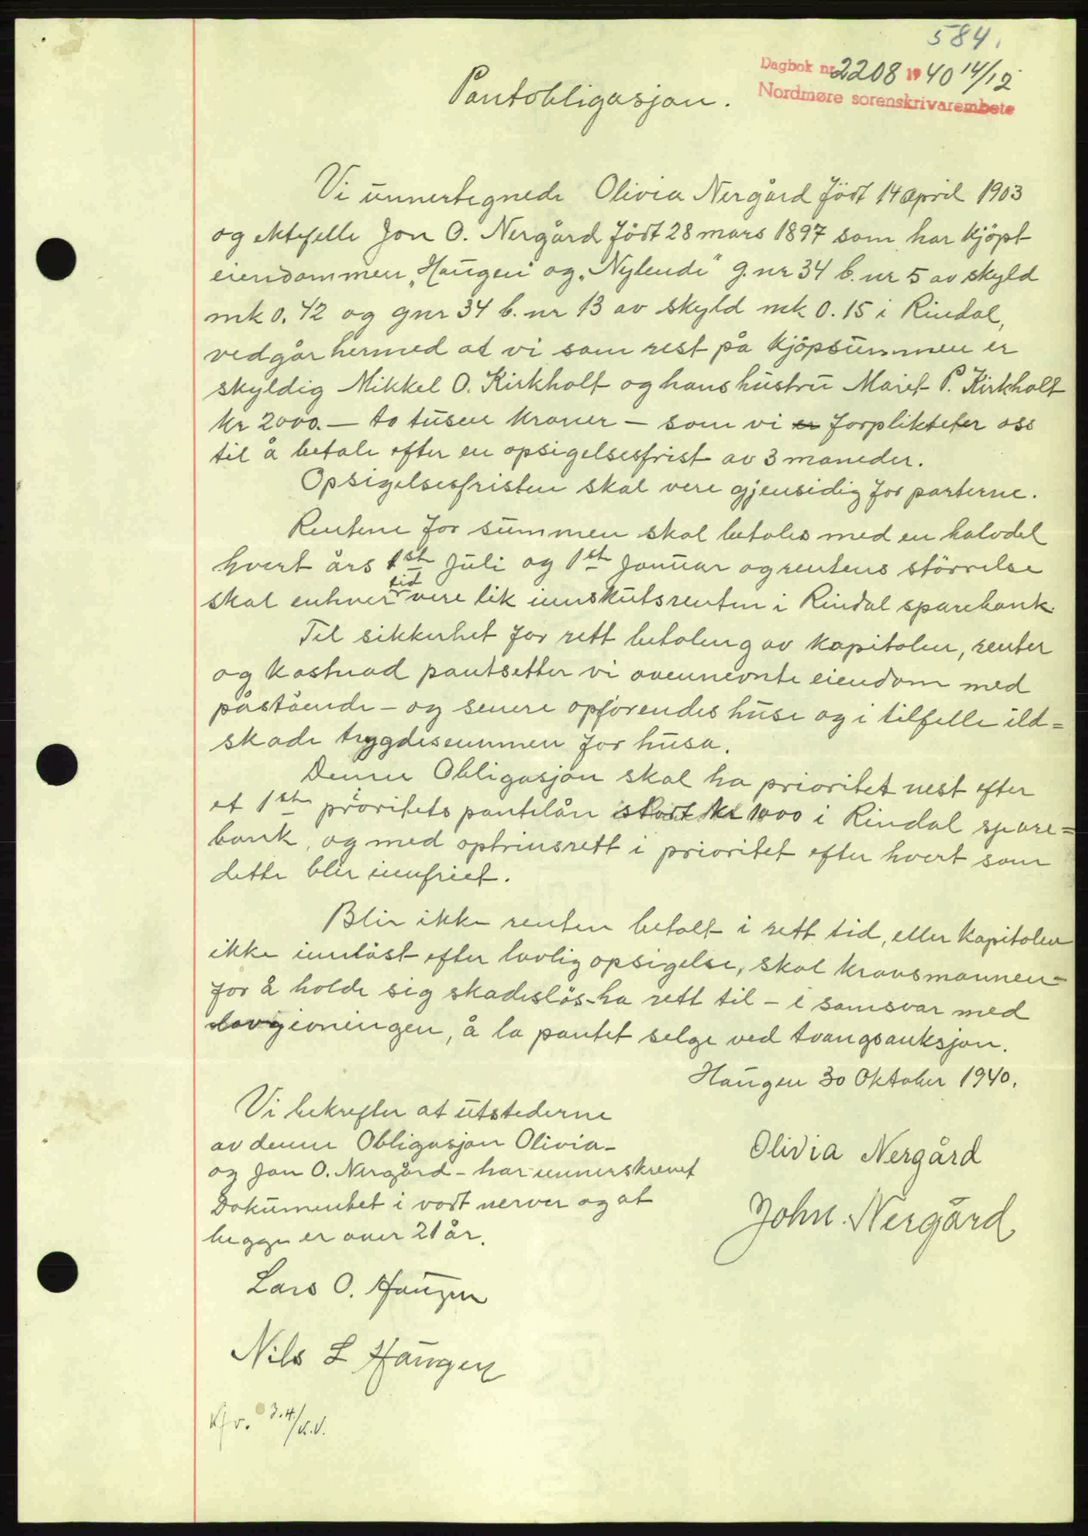 584.
Dagbok nr 2208 1940 14/12
Nordmøre sorenskrivarembete
Pantobligasjon.
Vi unnertegnede Olivia Nergård födt 14 april 1903
og ektefelle Jon O. Nergård födt 28 mars 1897 som har kjöpt
eiendommen „Haugen" og „Nylende" g.nr 34 b.nr 5 av skyld
mk 0.42 og gnr 34 b.nr 13 av skyld mk 0.15 i Rindal,
vedgår hermed at vi som rest på kjöpsummen er
skyldig Mikkel O. Kirkholt og hans hustru Marit P. Kirkholt
kr 2000.— to tusen kroner — som vi er forplikteter oss
til å betale efter en opsigelsesfrist av 3 maneder.
Opsigelsesfristen skal vere gjensidig for parterne.
Rentene for summen skal betales med en halvdel
hvert års 1st Juli og 1st Januar og rentens störrelse
skal enhver tid vere lik innskutsrenten i Rindal sparebank.
Til sikkerhet for rett betaling av kapitalen, renter
og kostnad pantsetter vi ovennevnte eiendom med
påstående - og senere opförendes huse og i tilfelle ild=
skade trygdesummen for husa.
Denne Obligasjon skal ha prioritet nest efter
et 1st prioritets pantelån stort kr 1000 i Rindal spare=
bank, og med optrinsrett i prioritet efter hvert som
dette blir innfriet.
Blir ikke renten betalt i rett tid, eller kapitalen
ikke innlöst efter lovlig opsigelse, skal kravsmannen-
for å holde sig skadeslös-ha rett til - i samsvar med
lovgivningen, å la pantet selge ved tvangsauksjon.
Haugen 30 Oktober 1940.
Vi bekrefter at utstederne
av denne Obligasjon Olivia-
og Jon O. Nergård - har unnerskrevet
Dokumentet i vort nerver og at
begge er over 21 år.
Olivia Nergård
John. Nergård
Lars O. Haugen
Nils L Haugen